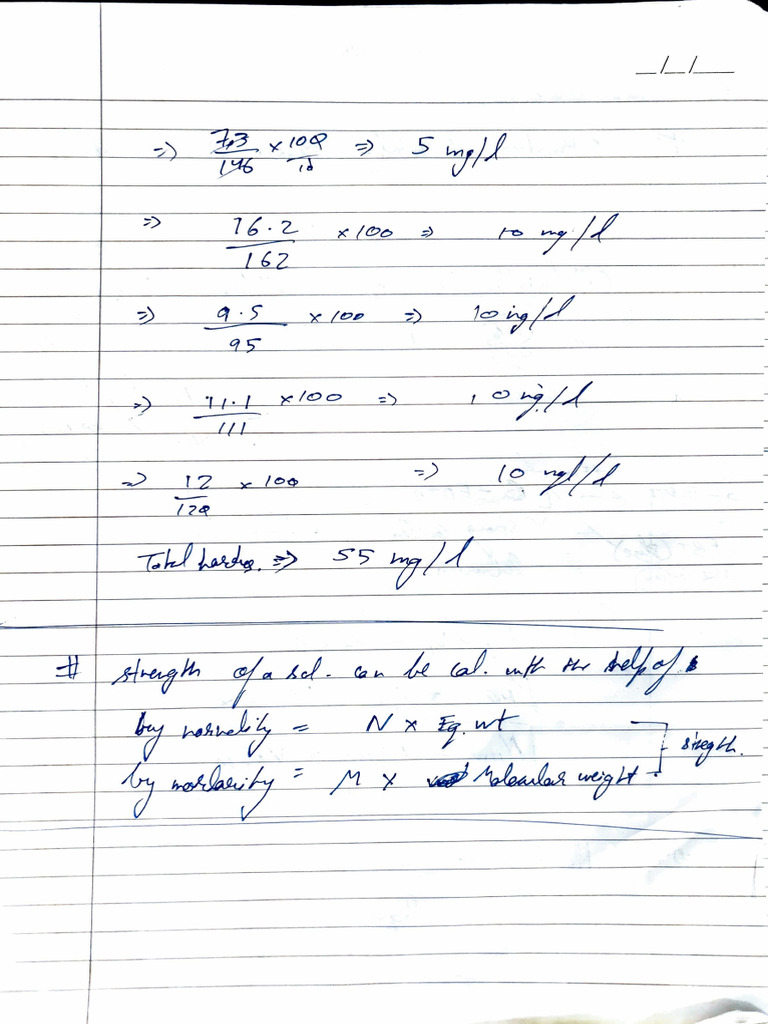 __/__/____
=> 7.3/146 × 100/10 => 5 mg/l
=> 16.2/162 × 100 => 10 mg/l
=> 9.5/95 × 100 => 10 mg/l
=> 11.1/111 × 100 => 10 mg/l
=> 12/120 × 100 => 10 mg/l
Total => 55 mg/l
# strength of a sol. can be cal. with the help of
by normality = N × Eq. wt
strength.
by morlarity = M × Molecular weight